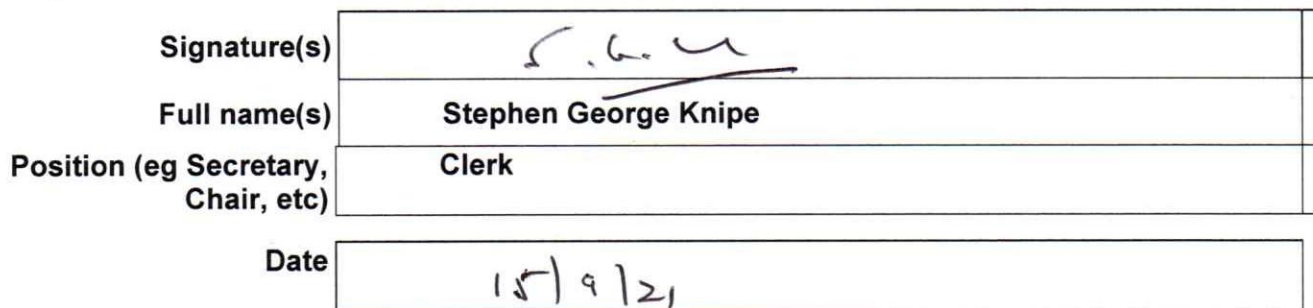 Signature(s) S. G. K
Full name(s) Stephen George Knipe
Position (eg Secretary, Clerk
Chair, etc)
Date 15/9/21